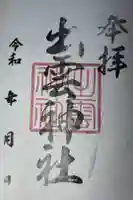 奉拝
出雲神社
令和 年 月 日